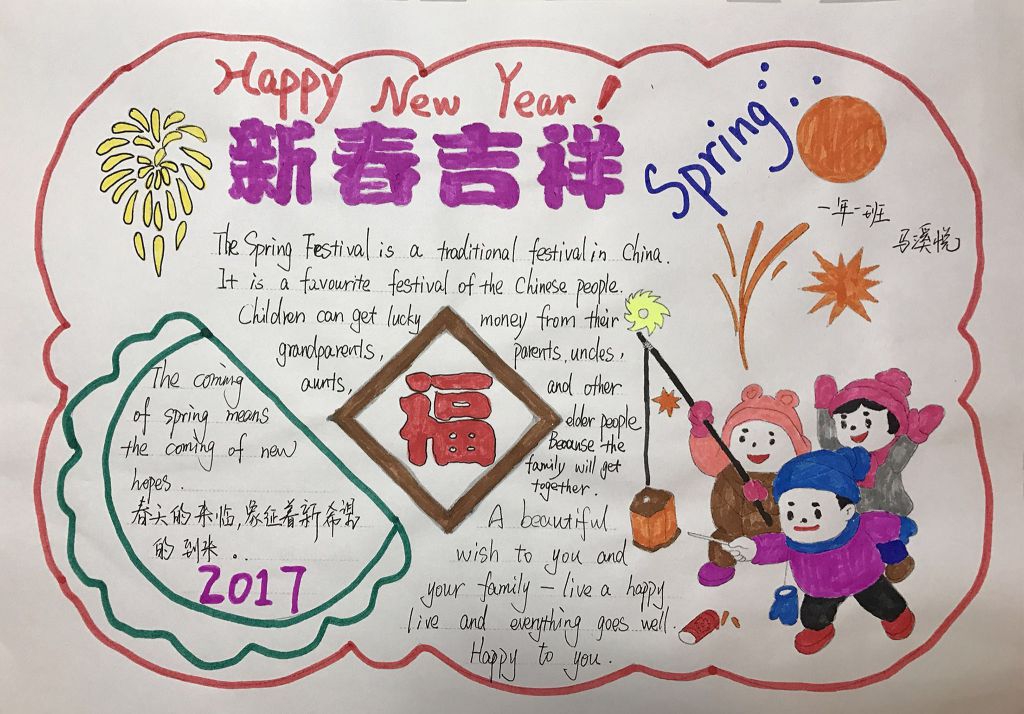 Happy New Year!
新春吉祥
Spring
一年一班
马溪悦
The Spring Festival is a traditional festival in China.
It is a favourite festival of the Chinese people.
Children can get lucky money from their
grandparents, parents, uncles,
aunts, and other
elder people
Because the
family will get
together.
福
The coming
of spring means
the coming of new
hopes.
春天的来临,象征着新希望
的到来..
2017
A beautiful
wish to you and
your family - live a happy
live and everything goes well.
Happy to you.